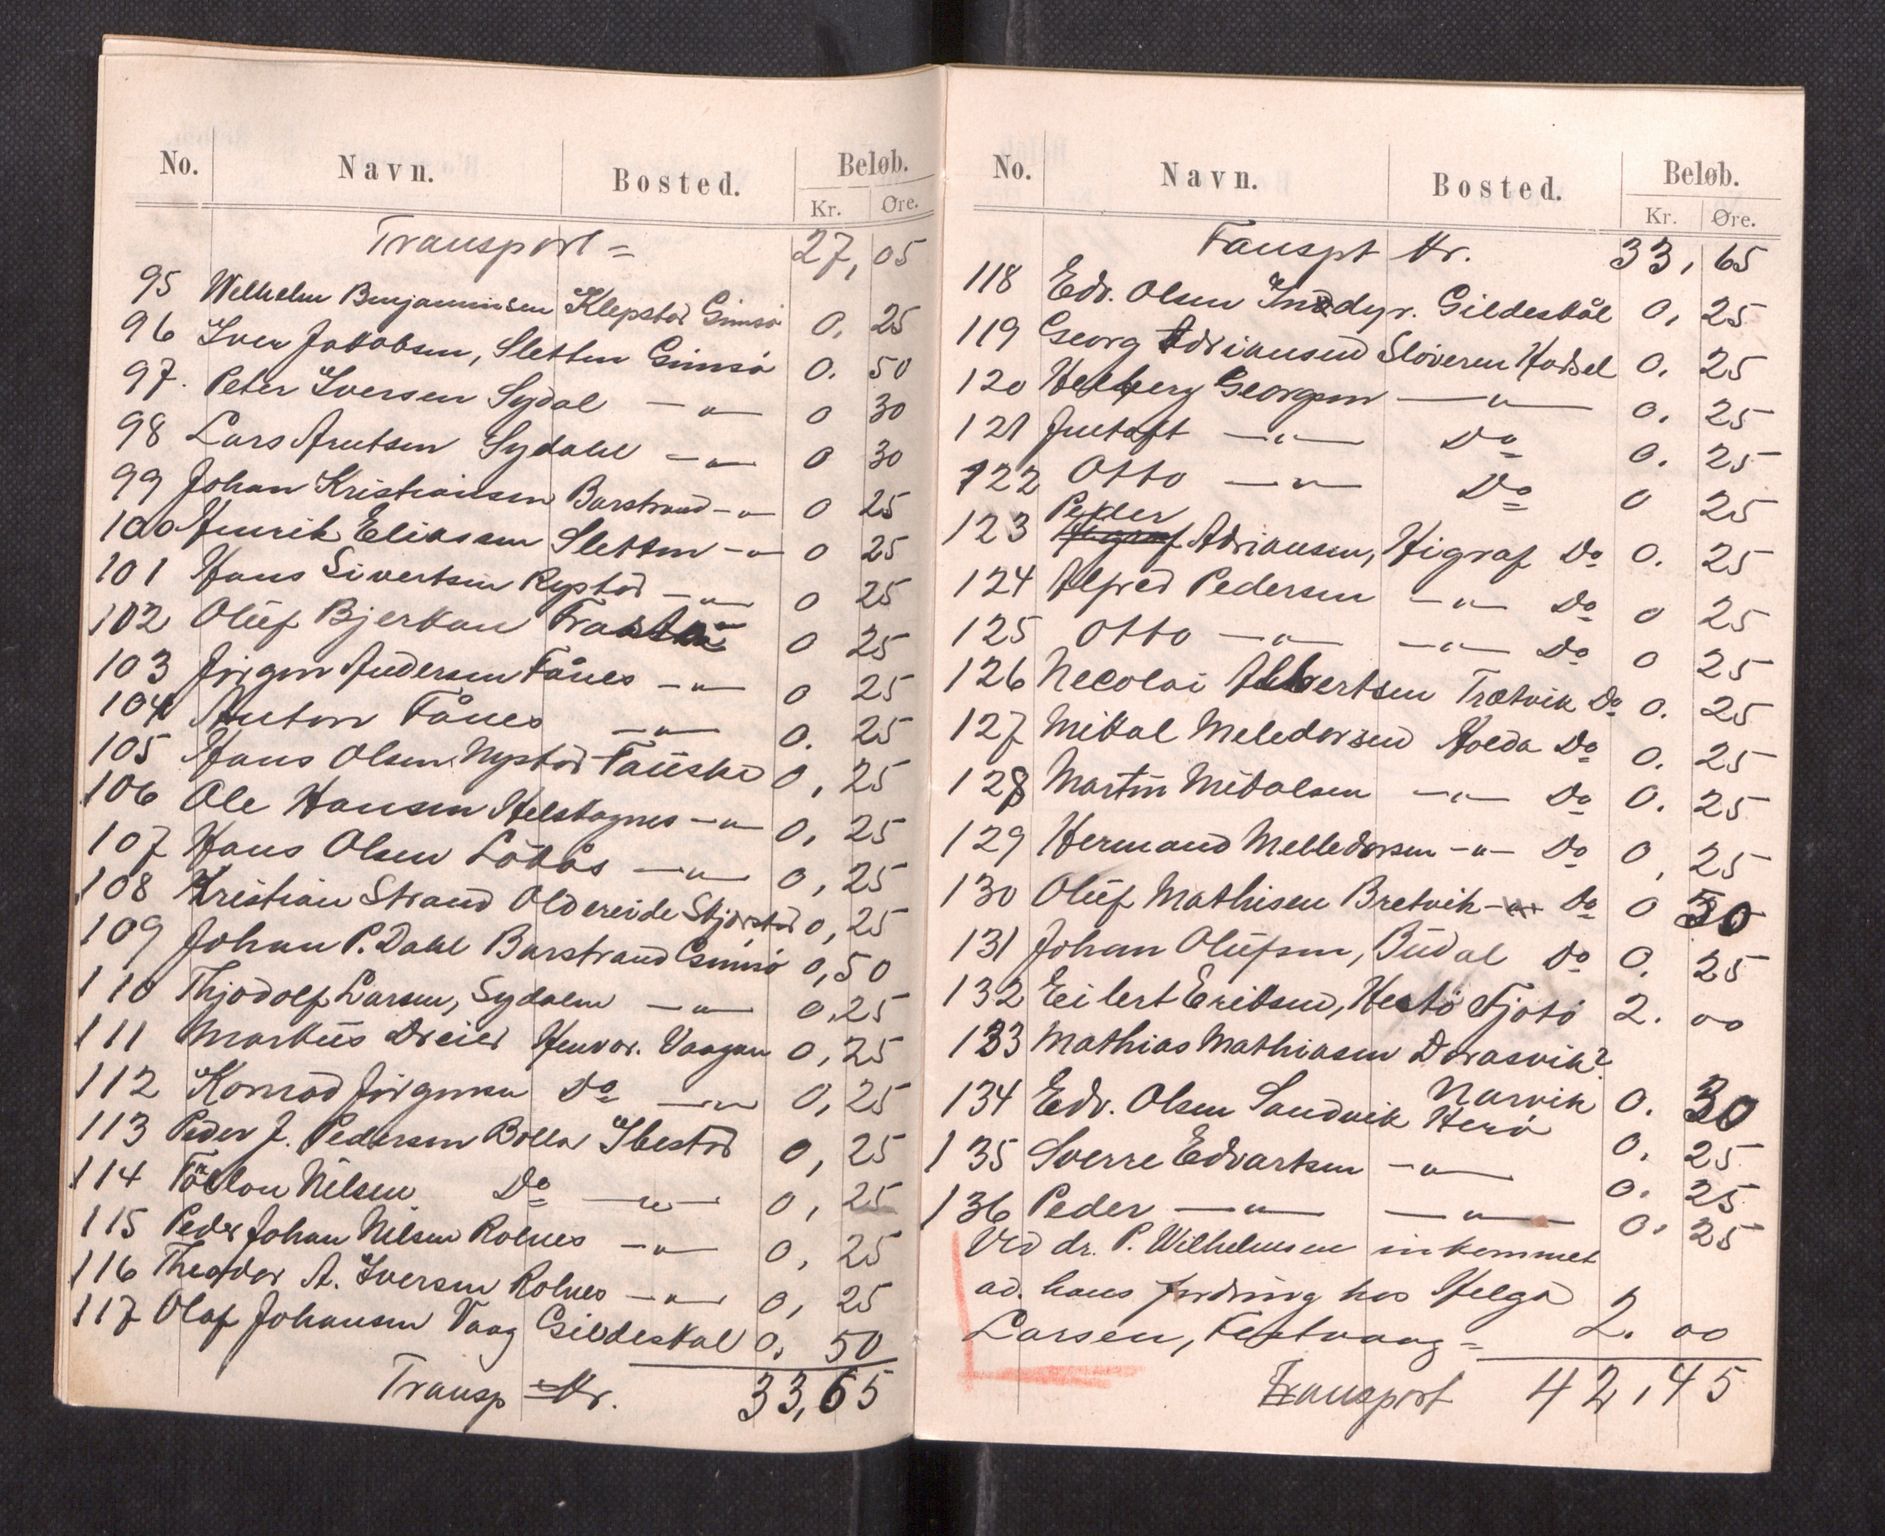 No. Navn. Bosted. Beløb.
Kr. Øre.
Transport = 27,05
95 Wilhelm Benjaminsen Klepstad Gimsø 0. 25
96 Iver Jakobsen, Sletten Gimsø 0. 50
97. Peter Iversen Sydal — " — 0 30
98 Lars Arntsen Sydalel — " — 0 30
99 Johan Kristiansen Barstrand - " - 0 25
100 Henrik Eliassen Sletten - " - 0 25
101 Hans Sivertsen Rystad — " — 0 25
102 Oluf Bjerkan 0 25
103 Jørgen Andersen Fånes — " — 0 25
104 Anton Fånes — " — 0. 25
105 Hans Olsen Nystad Fauske 0, 25
106 Ole Hansen Helskagnes — " — 0, 25
107 Hans Olsen Løkås — " — 0, 25
108 Kristian Strand Oldereide Skjerstad 0, 25
109 Johan P. Dahl Barstrand Gimsø 0,50
110 Thjodolf Larsen, Sydalen — " — 0,25
111 Markus Dreier Henvar. Vaagan 0, 25
112 Konrad Jørgensen Do — " — 0, 25
113 Peder J. Pedersen Bolla Ibestad 0, 25
114 Nilsen Do — " — 0, 25
115 Peder Johan Nilsen Rolnes — " — 0, 25
116 Theodor A. Iversen Rolnes — " — 0, 25
117 Olaf Johansen Vaag Gildeskal 0, 50
Transp Kr. 33,65
No. Navn. Bosted. Beløb.
Kr. Øre.
Tanspt Kr. 33, 65
118 Edv. Olsen Inndyr. Gildeskål 0, 25
119 Georg Adriansen Sløveren Hadsel 0. 25
120 Helberg Georgsen — " — 0. 25
121 Gustaft — " — Do 0. 25
122 Otto — " — Do 0 25
Peder
123 Adriansen, Higraf Do 0. 25
124 Alfred Pedersen — " — Do 0 25
125 Otto — " — — " — Do 0 25
126 Necolai Albertsen Trætvik Do 0. 25
127 Mikal Meledorsen Holda Do 0. 25
128 Martin Mikalsen — " — Do 0. 25
129 Hermand Melledorsen - " - Do 0, 25
130 Oluf Mathisen Bretvik - " - Do 0 50
131 Johan Olufsen, Budal Do 0. 25
132 Eilert Eriksen, Hestø Fjotø 2. 00
133 Mathias Mathiasen Dorasvik?
Narvik 0. 30
134 Edv. Olsen Sandvik Herø 0. 25
135 Sverre Edvartsen — " — 0. 25
136 Peder — " — — " — 0. 25
Ved dr. P. Wilhelmsen inkommet
ad. hans fordring hos Helga
Larsen, Festvaag = 2. 00
Transport 42,45